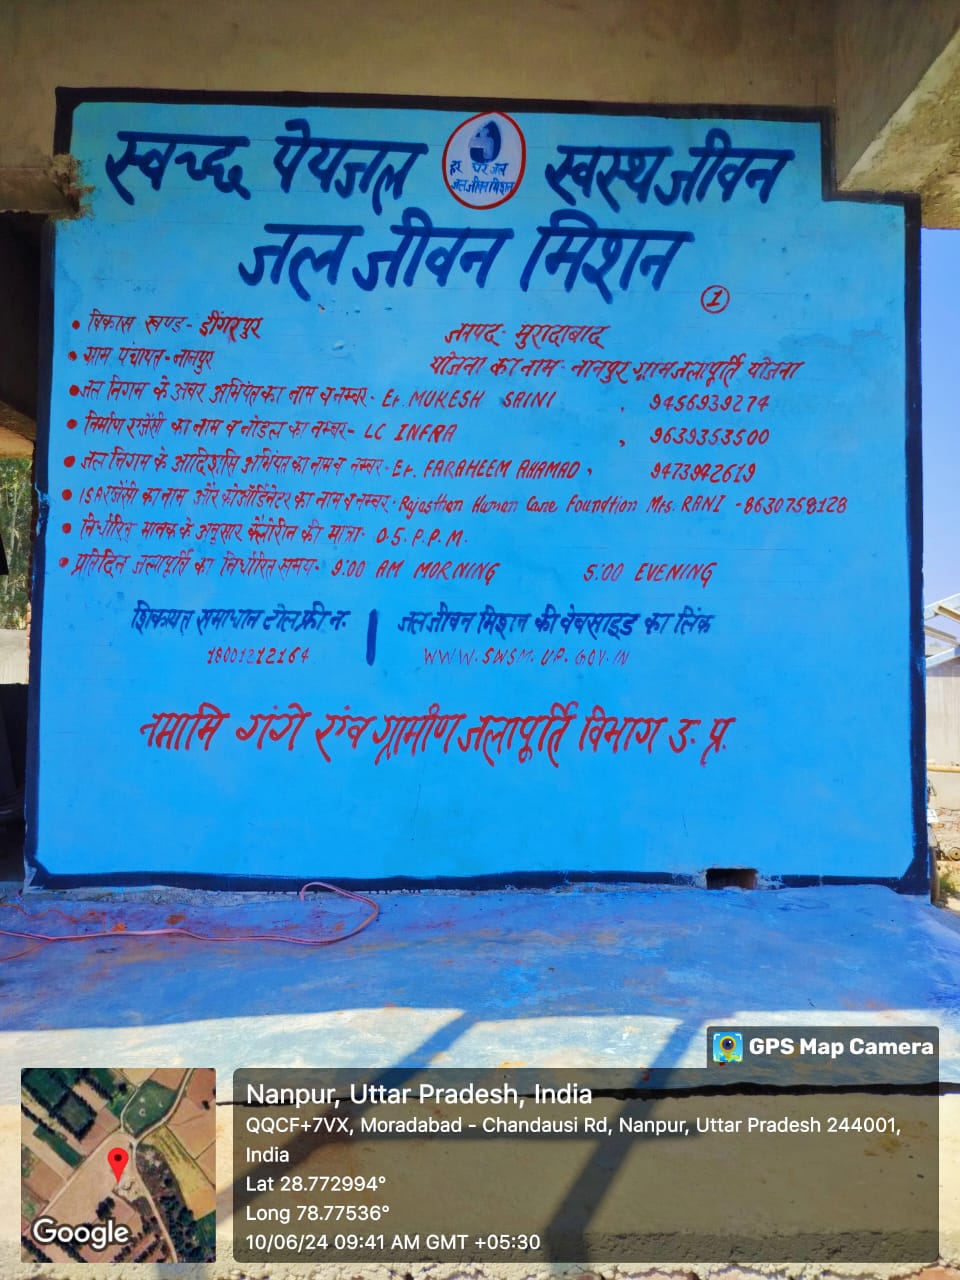 स्वच्छ पेयजल
हर घर जल
जल जीवन मिशन
स्वस्थ जीवन
जल जीवन मिशन
1
• विकास खण्ड- डींगरपुर
जनपद- मुरादाबाद
• ग्राम पंचायत- नानपुर
योजना का नाम- नानपुर ग्राम जलापूर्ति योजना
• जल निगम के अवर अभियंता का नाम व नम्बर- Er. MUKESH SAINI , 9456939274
• निर्माण एजेंसी का नाम व नोडल का नम्बर- LC INFRA , 9639353500
• जल निगम के अधिशासी अभियंता का नाम व नम्बर- Er. FARAHEEM AHAMAD , 9473942619
• ISA एजेंसी का नाम और कोऑर्डिनेटर का नाम व नम्बर- Rajasthan Human Care Foundtion Mrs. RANI -8630758128
• निर्धारित मानक के अनुसार क्लोरीन की मात्रा- 0.5. P.P.M.
• प्रतिदिन जलापूर्ति का निर्धारित समय- 9:00 AM MORNING 5:00 EVENING
शिकायत समाधान टोल फ्री न.
18001212164
जल जीवन मिशन की वेबसाइड का लिंक
WWW.SWSM.UP.GOV.IN
नमामि गंगे एंव ग्रामीण जलापूर्ति विभाग उ. प्र.
GPS Map Camera
Nanpur, Uttar Pradesh, India
QQCF+7VX, Moradabad - Chandausi Rd, Nanpur, Uttar Pradesh 244001,
India
Lat 28.772994°
Long 78.77536°
10/06/24 09:41 AM GMT +05:30
Google